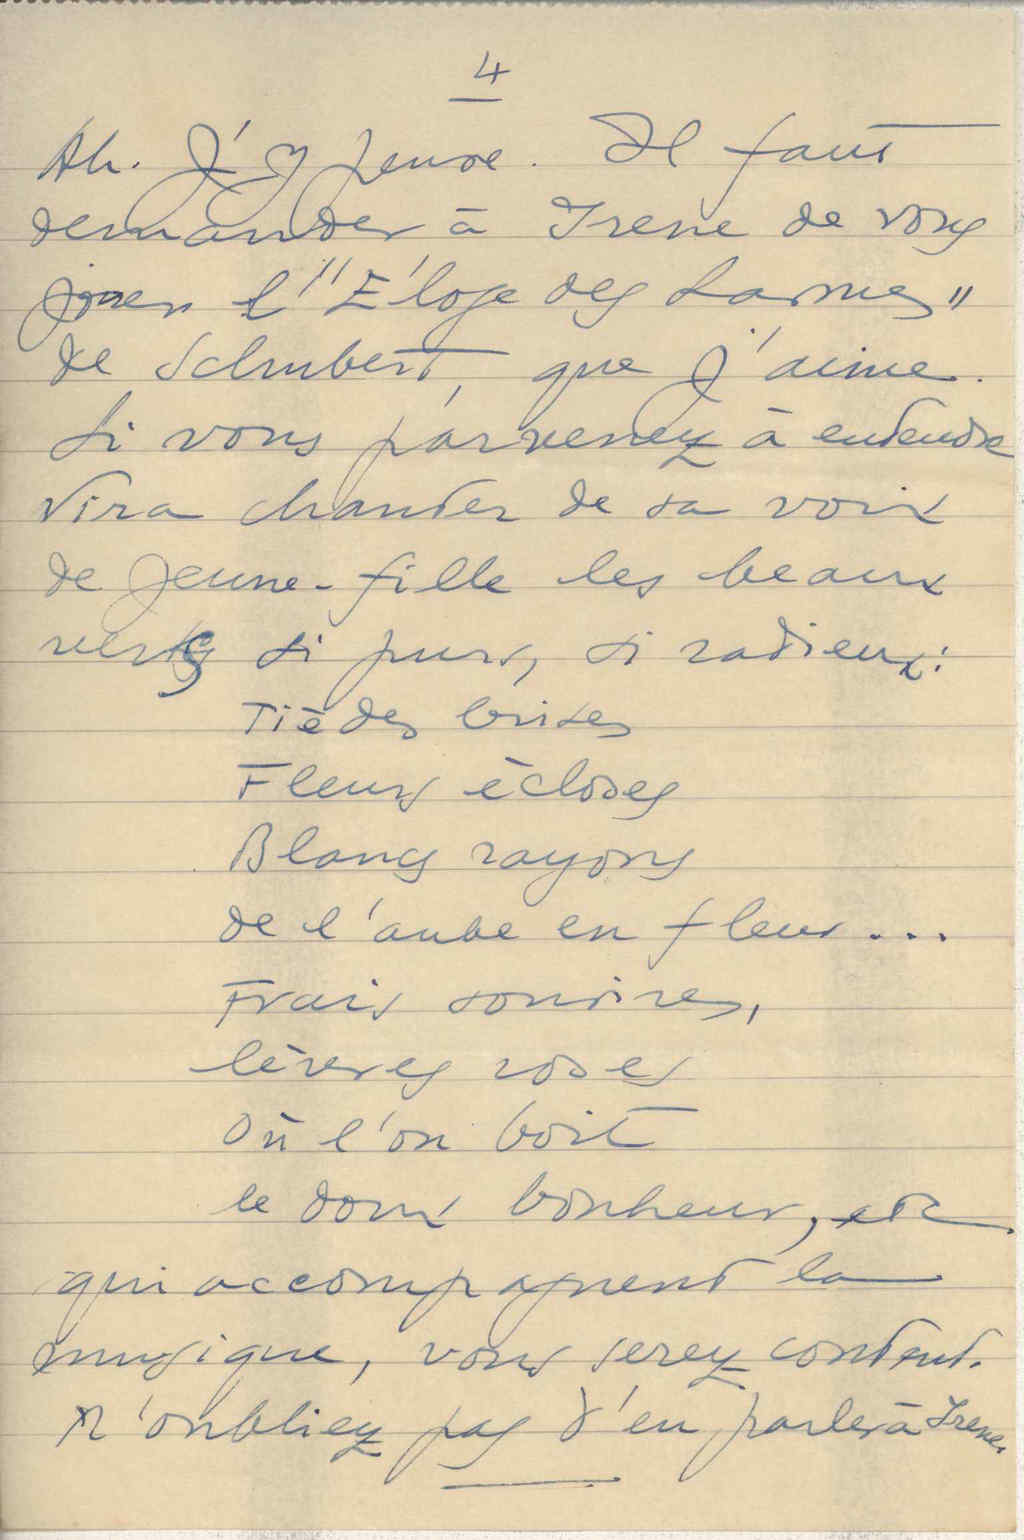 4
Ah. J'y pense. Il faut
demander à Irene de vous
jouer l'"Éloge des Larmes"
de Schubert, que j'aime.
Si vous parvenez à entendre
Vira chanter de sa voix
de jeune-fille les beaux
vers si purs, si radieux:
Tièdes brises
Fleurs écloses
Blancs rayons
de l'aube en fleur...
Frais sourires,
lèvres roses
Où l'on boit
le doux bonheur, etc.
qui accompagnent la
musique, vous serez content.
N'oubliez pas d'en parler à Irene.